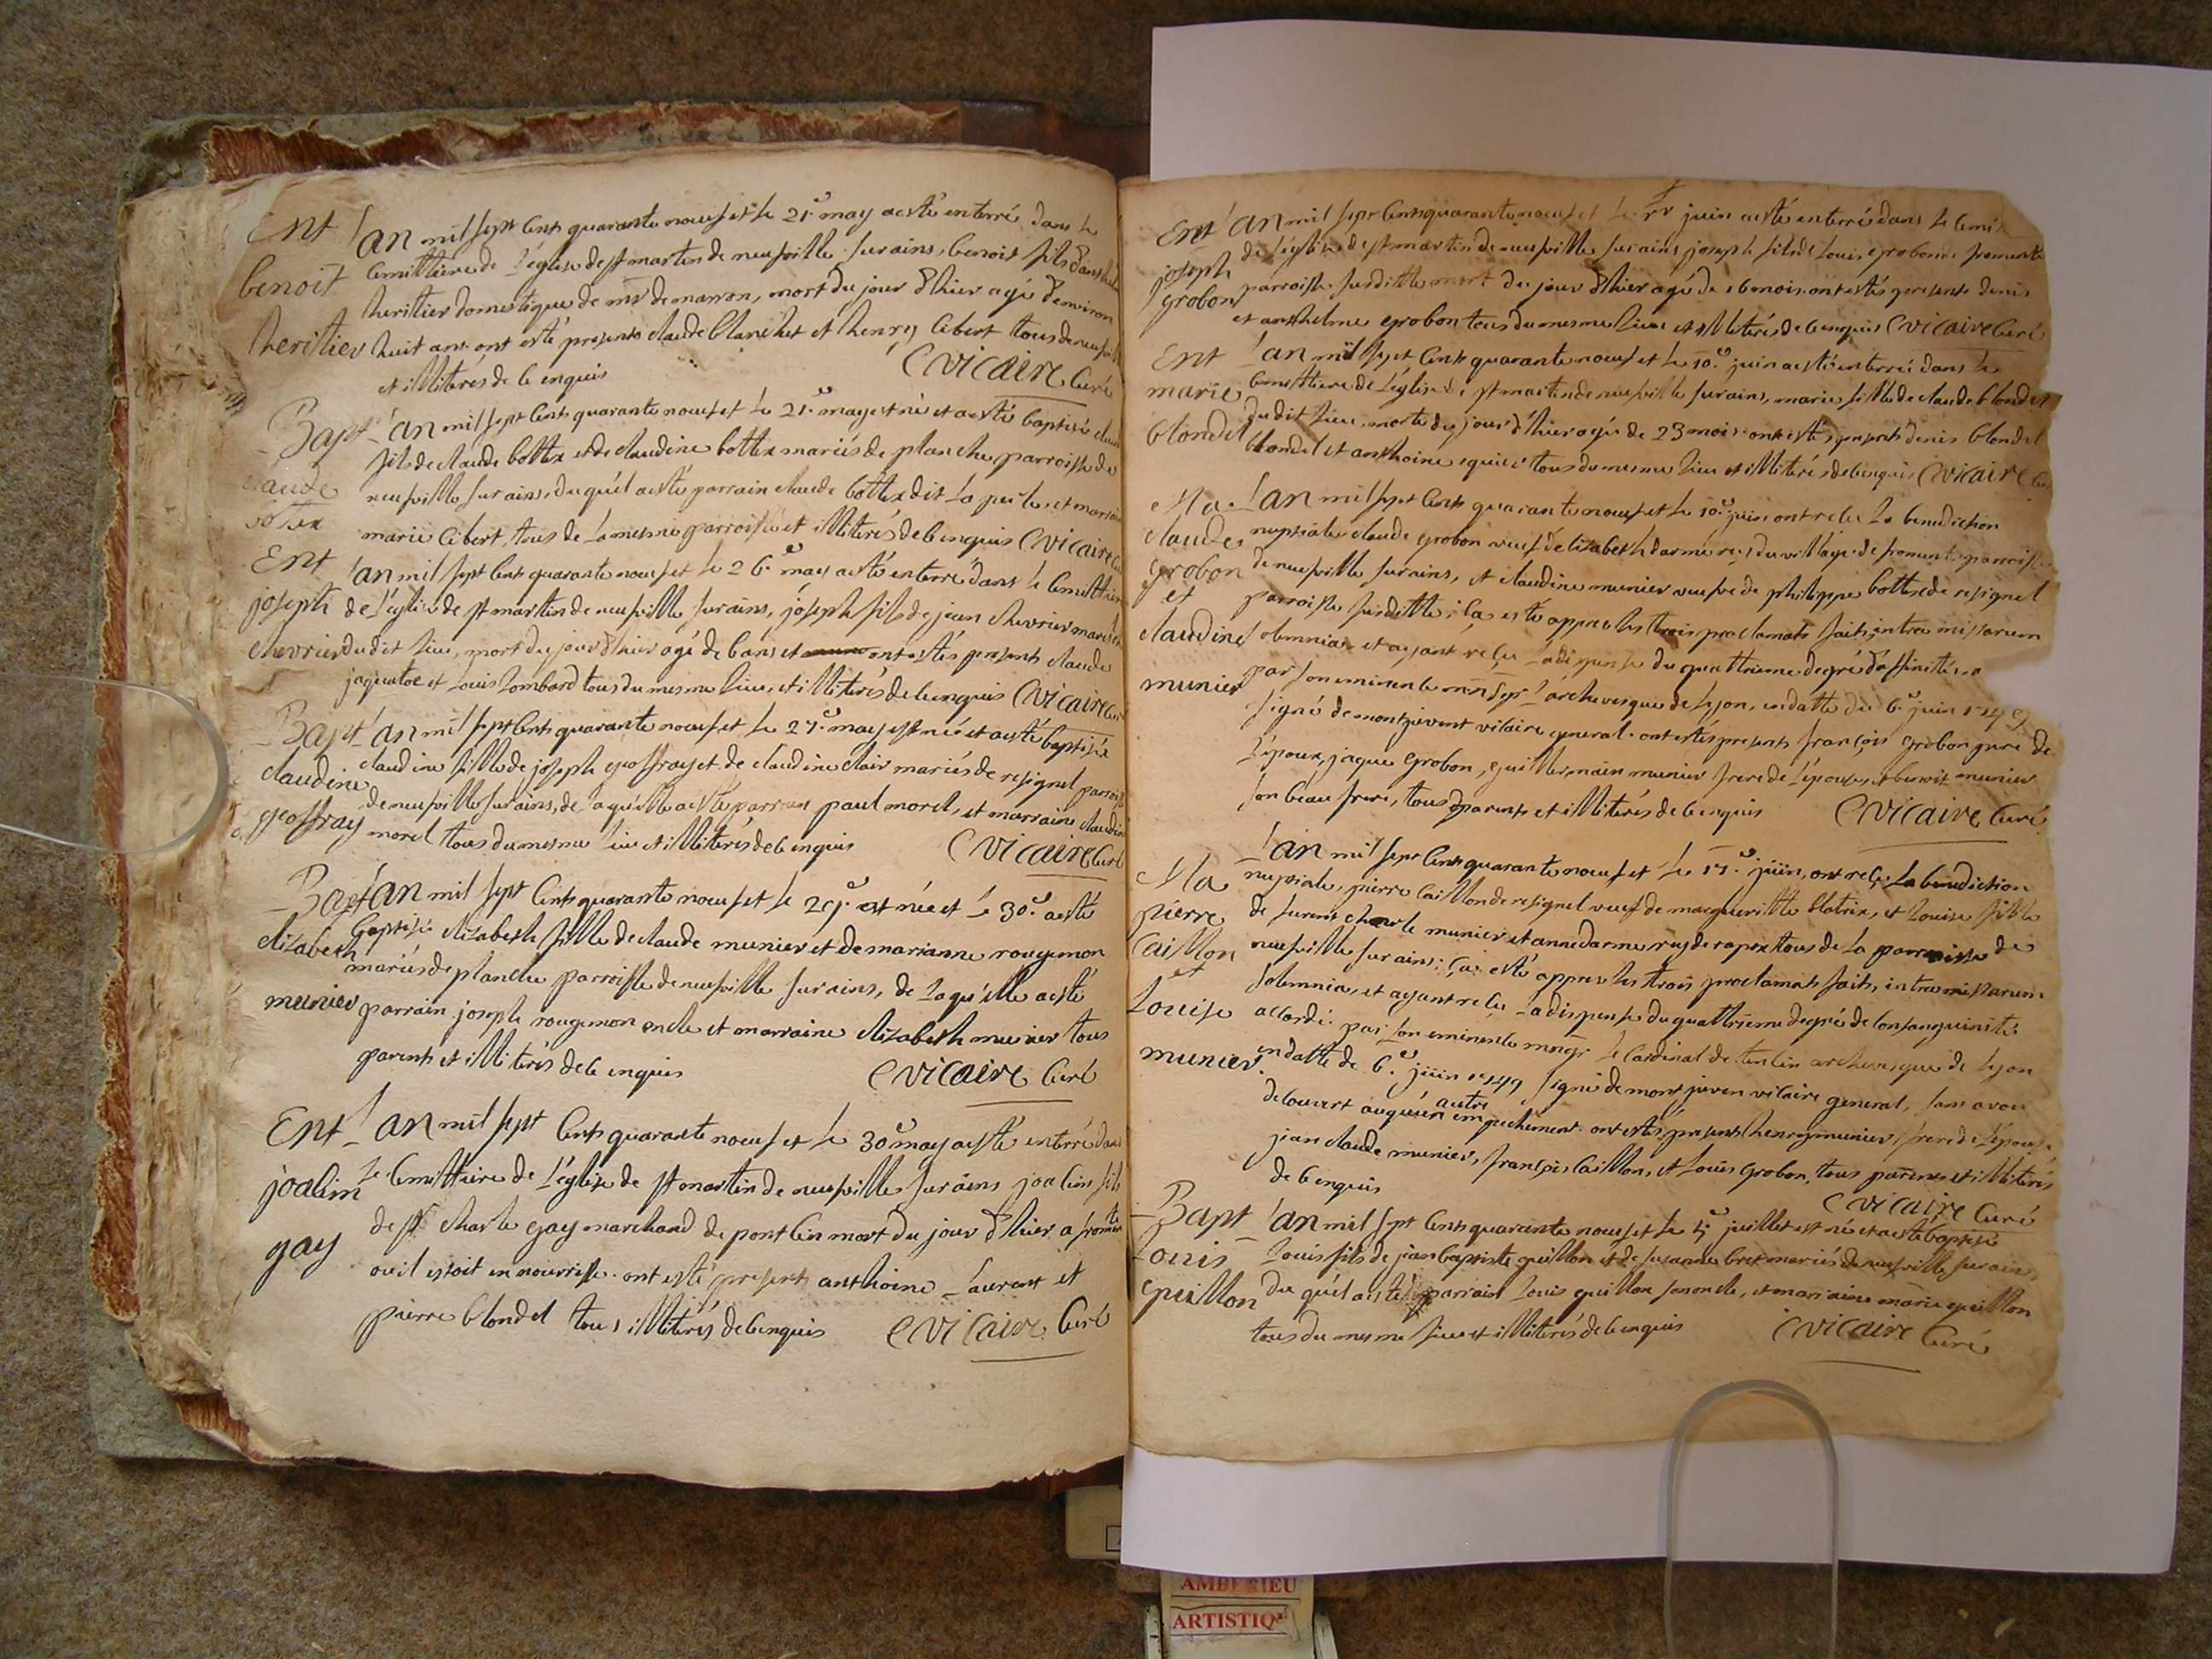 Ent
benoit
heritier
l'an mil sept cents quarante noeuf et le 21e may a esté enterré dans le
cemittiere de l'église de st martin de neufville sur ains, benoit fils
heritier domestique de mr de marron, mort du jour d'hier agé d'environ
huit ans ont esté presents claude blanchet et henry cibert tous de neufville
et illiterés de ce enquis Cvicaire curé
Bapt
claude
bottex
l'an mil sept cents quarante noeuf et le 21e may est né et a esté baptisé
fils de claude bottex et de claudine bottex mariés de planche parroisse de
neufville sur ains, duquel a esté parrain claude bottex dit la perle, et marraine
marie cibert, tous de la mesme parroisse et illiterés de ce enquis Cvicaire
Ent
joseph
chevrier
l'an mil sept cents quarante noeuf et le 26e may a esté enterré dans le cemittiere
de l'église de st martin de neufville sur ains, joseph fils de jean chevrier
du dit lieu, mort du jour d'hier agé de 6 ans et ont estés presents claude
et louis lombard tous du mesme lieu, et illiterés de ce enquis Cvicaire
Bapt
claudine
geoffray
l'an mil sept cents quarante noeuf et le 27e may est née et a esté baptisée
claudine fille de joseph geoffray et de claudine clair mariés de resignel parroisse
de neufville sur ains, de laquelle a esté parrain paul morel, et marraine claudine
morel tous du mesme lieu et illiterés de ce enquis Cvicaire curé
Bapt
elizabeth
munier
l'an mil sept cents quarante noeuf et le 29e est née et le 30e a esté
baptisée elizabeth fille de claude munier et de marianne rougemon
mariés de planche parroisse de neufville sur ains, de laquelle a esté
parrain joseph rougemon oncle et marraine elizabeth munier tous
parents et illiterés de ce enquis Cvicaire curé
Ent
joacim
gay
l'an mil sept cents quarante noeuf et le 30e may a esté enterré dans
le cemittiere de l'église de st martin de neufville sur ains joacim fils
de sr charle gay marchand de pont cin mort du jour d'hier a fromente
ou il estoit en nourrisse. ont esté presents anthoine laurent et
pierre blondel tous illiterés de ce enquis Cvicaire curé
Ent
joseph
grobon
l'an mil sept cents quarante noeuf et le juin a esté enterré dans le
de l'église de st martin de neufville sur ains joseph fils de louis grobon de fromente
parroisse susditte mort du jour d'hier agé de ont estés presents denis
et anthelme grobon tous du mesme lieu et illiterés de ce enquis Cvicaire curé
Ent
marie
blondel
l'an mil sept cents quarante noeuf et le 10e juin a esté enterré dans le
cemittiere de l'église de st martin de neufville sur ains, marie fille de claude blondel
du dit lieu, morte du jour d'hier agée de 23 mois ont estés presents denis blondel
blondel et anthoine tous du mesme lieu et illiterés de ce enquis Cvicaire
Ma
claude
grobon
et
claudine
munier
l'an mil sept cents quarante noeuf et le 10e juin ont recu la benediction
nuptiale claude grobon veuf d'elizabeth darmerey du village de fromente parroisse
de neufville sur ains, et claudine munier veufve de philippe bottex de resignel
parroisse susditte; ça esté appres les trois proclamats faits intra missarum
solemnia et ayant reçu la dispense du quattrieme degré d'affinité
par son eminence l'archevesque de lyon, en datte du 6e juin 1749
signé de montjovent vicaire general. ont estés presents françois grobon pere de
l'époux, jaque grobon, munier frere de l'epouse, et benoit munier
son beau frere, tous parents et illiterés de ce enquis Cvicaire curé
Ma
pierre
caillon
et
louise
munier
l'an mil sept cents quarante noeuf et le 17e juin, ont reçu la benediction
nupsiale, pierre caillon de resignel veuf de margueritte blatrix, et louise fille
de furent charle munier et anne darmerey de rapex tous de la parroisse de
neufville sur ains; ça esté appres les trois proclamats faits, intra missarum
solemnia, et ayant reçu la dispense du quattrieme degré de consanguinité
accordé par son eminence le cardinal de tencin archevesque de lyon
en datte de 6e juin 1749 signé de montjoven vicaire general, sans avoir
decouvert auqu'un autre empechement. ont estés presents henry munier, frere de l'epouse,
jean claude munier, françois caillon, et louis grobon, tous parents et illiterés
de ce enquis Cvicaire curé
Bapt
louis
guillon
l'an mil sept cents quarante noeuf et le 5e juillet est né et a esté baptisé
louis fils de jean baptiste guillon et de susanne bret mariés de neufville sur ains,
du quel a esté parrain louis guillon son oncle, et marraine marie guillon
tous du mesme lieu et illiterés de ce enquis Cvicaire curé
AMBERIEU
ARTISTIQ